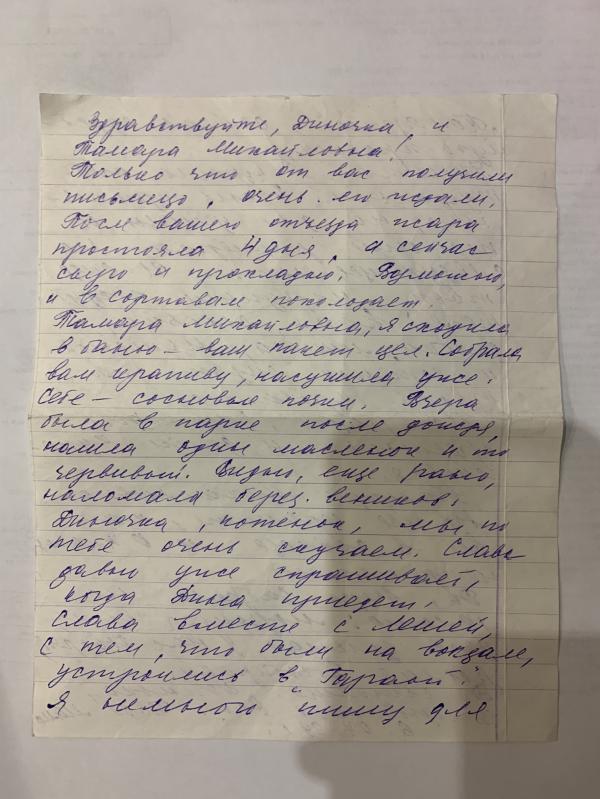 Здравствуйте, Диночка, и
Тамара Михайловна!
Только что от вас получили
письмецо, очень его ждали.
После вашего отъезда жара
простояла 4 дня, а сейчас
сыро и прохладно. Возможно,
и в Сортавале похолодает.
Тамара Михайловна, я сходила
в баню – ваш пакет цел. Собрала
вам крапиву, насушила уже.
Себе – сосновые почки. Вчера
была в парке после дождя,
нашла один масленок и то
червивой. Видно, еще рано,
наломали берез. веников.
Диночка, котенок, мы по
тебе очень скучаем. Слава
давно уже спрашивает,
когда Дина приедет.
Слава вместе с Лешей,
с тем, что были на вокзале,
устроились в
Я немного пишу для